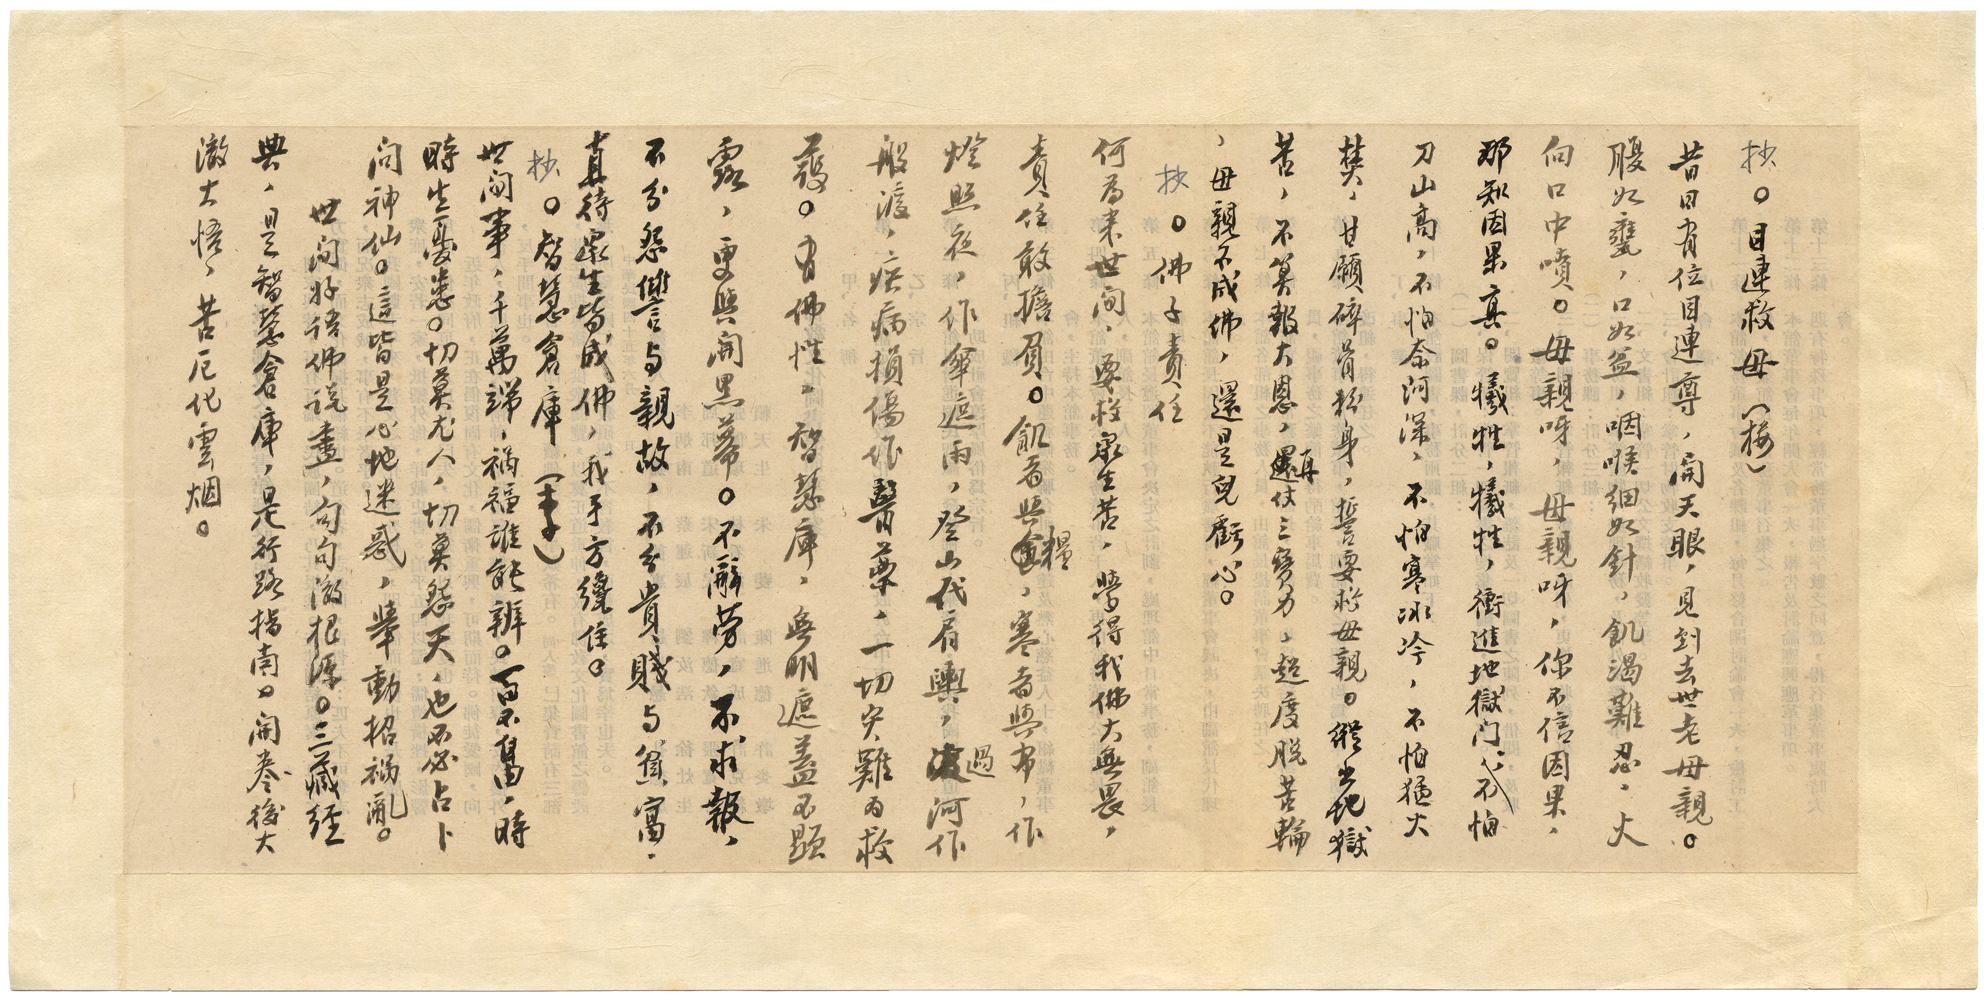 抄。目連救母（接）
昔日有位目連尊，開天眼，見到去世老母親。
腹如甕，口如盆，咽喉細如針，飢渴難忍，火
向口中噴。母親呀，母親呀，你不信因果，
那知因果真。犧牲，犧牲，衝進地獄門，不怕
刀山高，不怕奈河深，不怕寒冰冷，不怕猛火
焚，甘願碎骨粉身，誓要救母親。縱出地獄
苦，不算報大恩，再仗三寶力，超度脫苦輪
，母親不成佛，還是兒虧心。
抄。佛子責任
何為來世間，要救眾生苦，學得我佛大無畏，
責任敢擔負。飢者與糧，寒者與布，作
燈照夜，作傘遮雨，登山代肩輿，過河作
般渡，疾病損傷作醫藥，一切災難為救
護。有佛性，智慧庫，無明遮蓋不顯
露，更與開黑幕。不辭勞，不求報，
不分怨讐与親故，不分貴賤与貧富，
真待眾生皆成佛，我手方纔住。
抄。智慧倉庫（李）
世間事，千萬端，禍福誰能辨。百不當，時
時生憂愁。切莫尤人，切莫怨天，也不必占卜
問神仙。這皆是心地迷惑，舉動招禍亂。
世間好語佛说盡，句句澈根源。三藏經
典，是智慧倉庫，是行路指南。開卷後大
澈大悟，苦厄化雲烟。